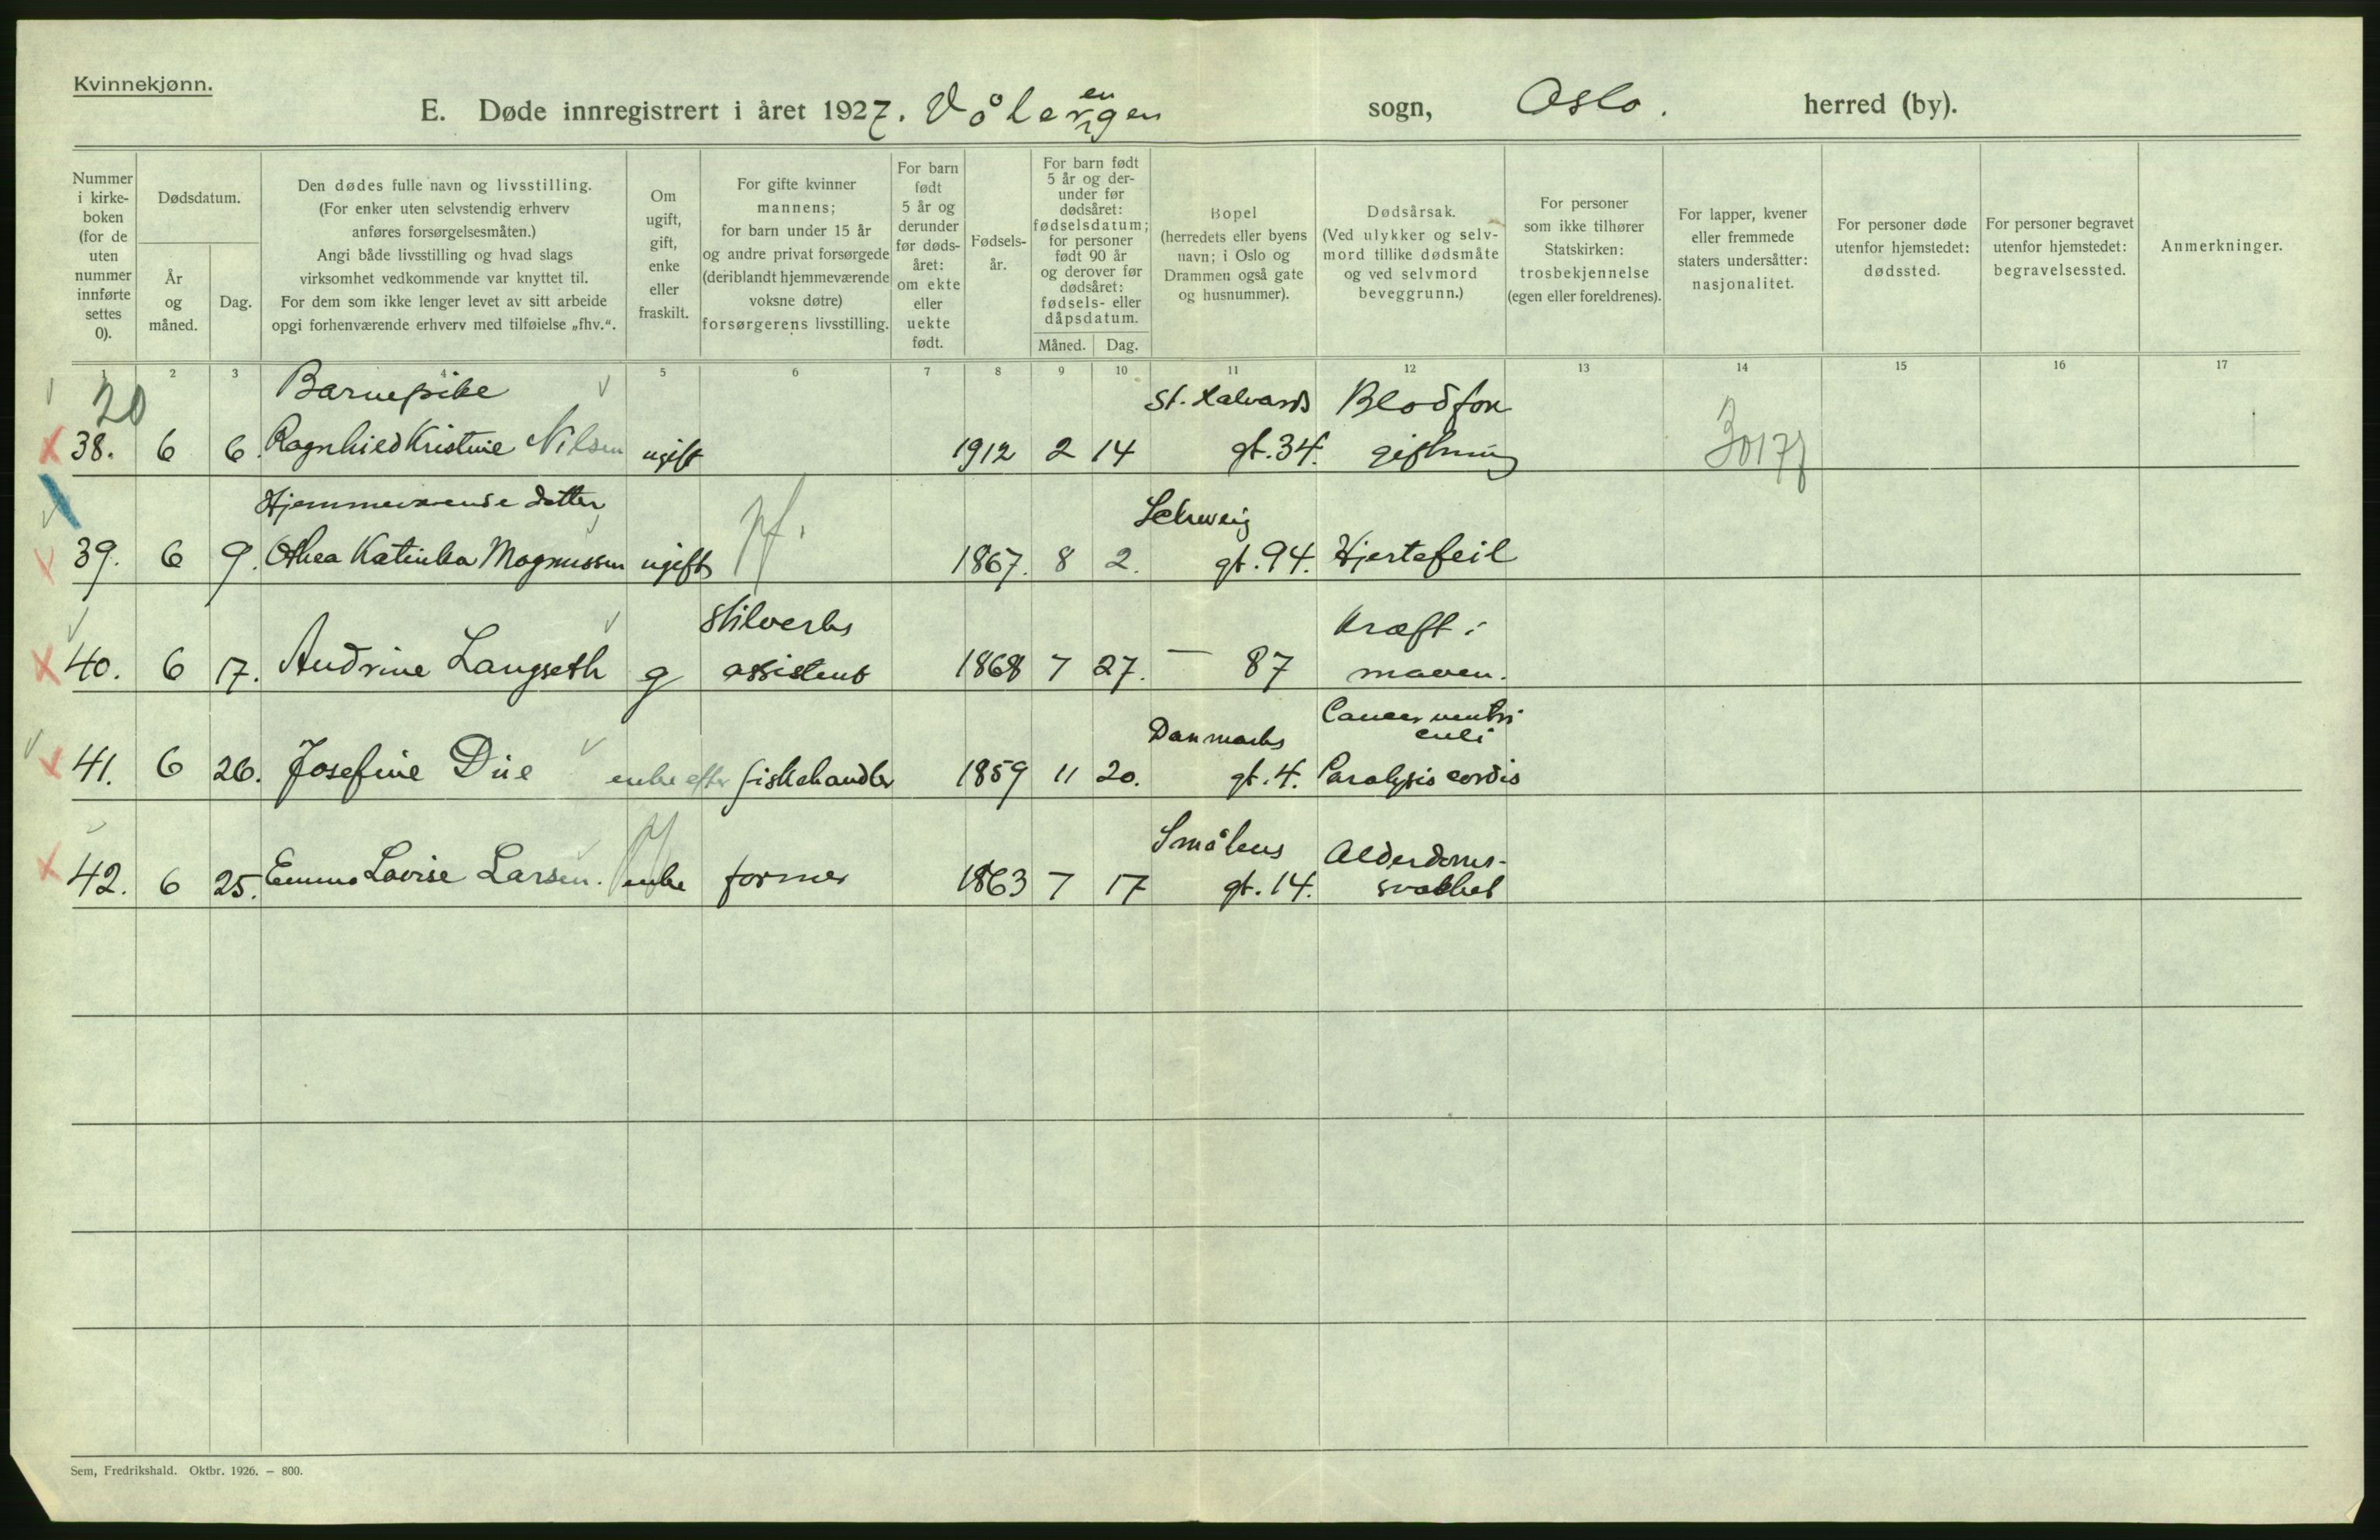 Kvinnekjønn.
E. Døde innregistrert i året 1927. Vålerengen sogn, Oslo. herred (by).
Nummer i kirke-boken (for de uten nummer innførte settes 0).
Dødsdatum.
År og måned.
Dag.
Den dødes fulle navn og livsstilling.
(For enker uten selvstendig erhverv
anføres forsørgelsesmåten.)
Angi både livsstilling og hvad slags
virksomhet vedkommende var knyttet til.
For dem som ikke lenger levet av sitt arbeide
opgi forhenværende erhverv med tilføielse „fhv.“.
Om ugift, gift, enke eller fraskilt.
For gifte kvinner
mannens;
for barn under 15 år
og andre privat forsørgede
(deriblandt hjemmeværende
voksne døtre)
forsørgerens livsstilling.
For barn født 5 år og derunder før døds-året: om ekte eller uekte født.
Fødsels-år.
For barn født
5 år og der-
under før
dødsåret:
fødselsdatum;
for personer
født 90 år
og derover før
dødsåret:
fødsels- eller
dåpsdatum.
Måned. Dag.
Bopel
(herredets eller byens
navn; i Oslo og
Drammen også gate
og husnummer).
Dødsårsak.
(Ved ulykker og selv-
mord tillike dødsmåte
og ved selvmord
beveggrunn.)
For personer
som ikke tilhører
Statskirken:
trosbekjennelse
(egen eller foreldrenes).
For lapper, kvener
eller fremmede
staters undersåtter:
nasjonalitet.
For personer døde
utenfor hjemstedet:
dødssted.
For personer begravet
utenfor hjemstedet:
begravelsessted.
Anmerkninger.
1 2 3 4 5 6 7 8 9 10 11 12 13 14 15 16 17
20 Barnepike St. Halvards Blodfor
38. 6 6. Ragnhild Kristine Nilsen ugift 1912 2 14 gt. 34. giftning
Hjemmeværende datter, Schweig
39. 6 9. Othea Katinka Magnussen ugift pf. 1867. 8 2. gt. 94. Hjertefeil
Stilverks Kræft i
40. 6 17. Andrine Langseth g assistent 1868 7 27. — 87 maven.
Danmarks Cancer ventri
culi
41. 6 26. Josefine Due enke efter fiskehandler 1859 11 20. gt. 4. Paralysis cordis
Smålens Alderdoms-
42. 6 25. Emma Lovise Larsen. enke former 1863 7 17 gt. 14. svakhet
Sem, Fredrikshald. Oktbr. 1926. – 800.